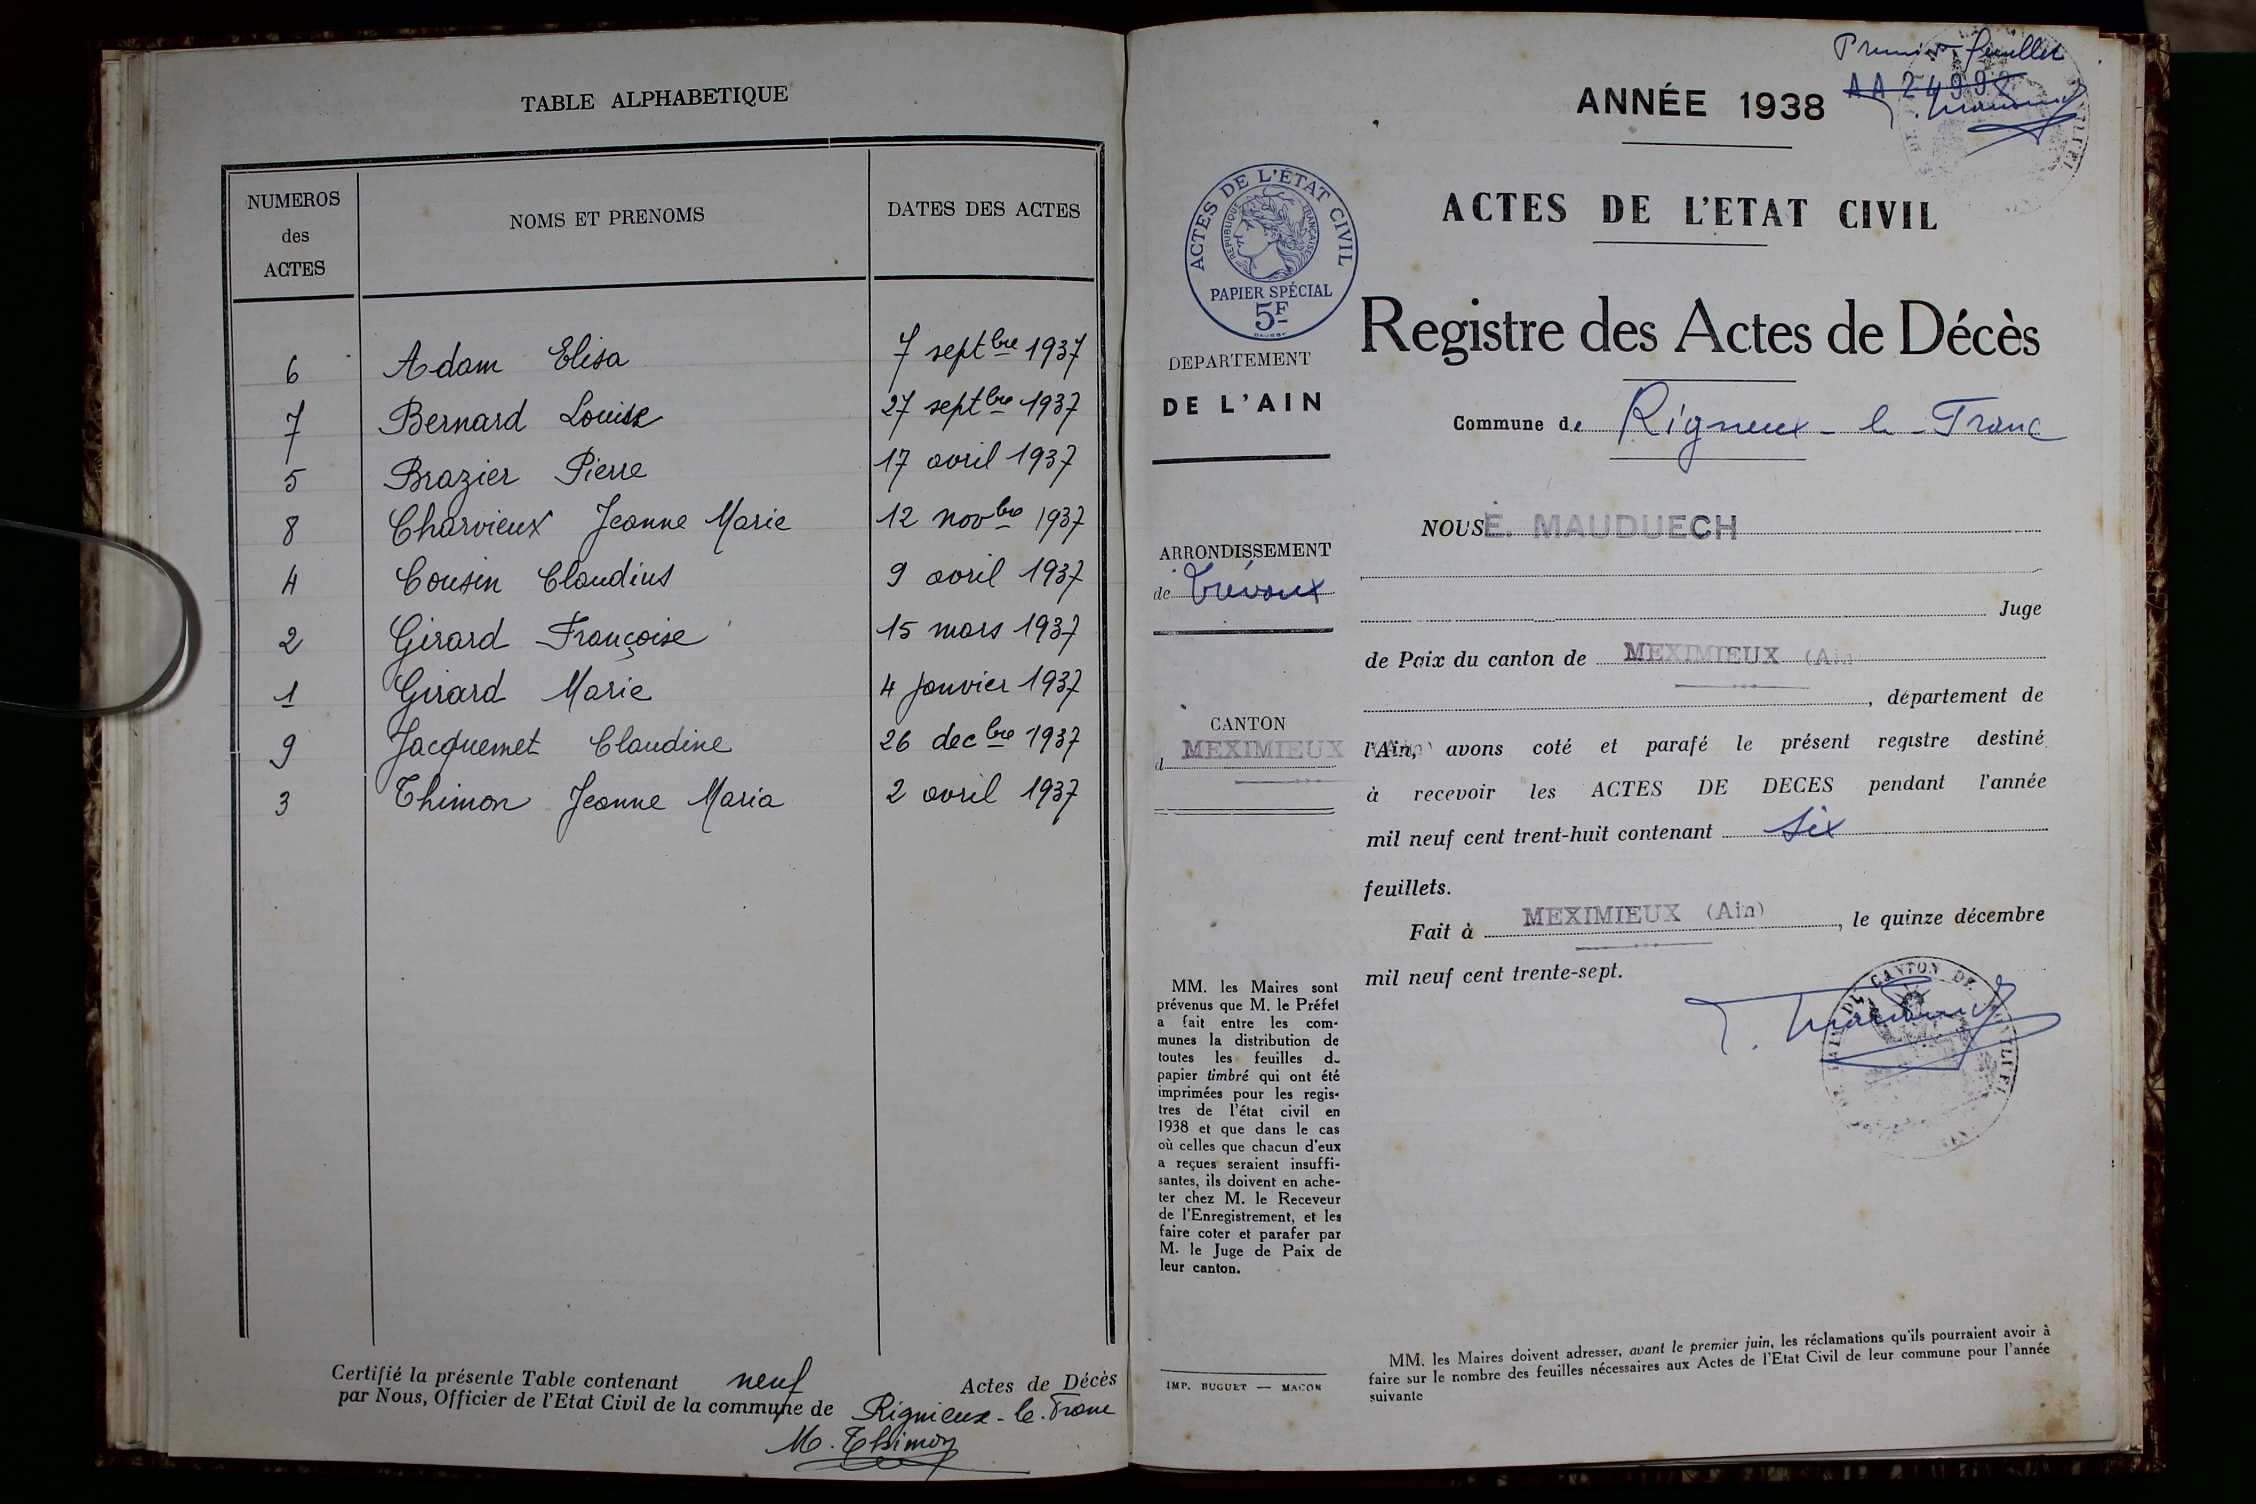 TABLE ALPHABETIQUE
NUMEROS
des
ACTES
NOMS ET PRENOMS
DATES DES ACTES
6 Adam Elisa 7 septbre 1937
7 Bernard Louise 27 septbre 1937
5 Brazier Pierre 17 avril 1937
8 Charvieux Jeanne Marie 12 novbre 1937
4 Cousin Claudius 9 avril 1937
2 Girard Françoise 15 mars 1937
1 Girard Marie 4 janvier 1937
9 Jacquemet Claudine 26 decbre 1937
3 Thimon Jeanne Maria 2 avril 1937
Certifié la présente Table contenant neuf Actes de Décès
par Nous, Officier de l'Etat Civil de la commune de Rignieux-le-Franc
M. Thimon
Premier feuillet
AA 24992
ANNÉE 1938
ACTES DE L'ETAT CIVIL
ACTES DE L'ÉTAT CIVIL
REPUBLIQUE FRANÇAISE
PAPIER SPÉCIAL
5F
DEPARTEMENT
DE L'AIN
ARRONDISSEMENT
de Trévoux
CANTON
d MEXIMIEUX (Ain)
MM. les Maires sont
prévenus que M. le Préfet
a fait entre les com-
munes la distribution de
toutes les feuilles de
papier timbré qui ont été
imprimées pour les regis-
tres de l'état civil en
1938 et que dans le cas
où celles que chacun d'eux
a reçues seraient insuffi-
santes, ils doivent en ache-
ter chez M. le Receveur
de l'Enregistrement, et les
faire coter et parafer par
M. le Juge de Paix de
leur canton.
IMP. BUGUET — MACON
Registre des Actes de Décès
Commune de Rigneux-le-Franc
NOUS E. MAUDUECH
Juge
de Paix du canton de MEXIMIEUX (Ain
, département de
l'Ain, avons coté et parafé le présent registre destiné
à recevoir les ACTES DE DECES pendant l'année
mil neuf cent trent-huit contenant six
feuillets.
Fait à MEXIMIEUX (Ain), le quinze décembre
mil neuf cent trente-sept.
CANTON DE
MM. les Maires doivent adresser, avant le premier juin, les réclamations qu'ils pourraient avoir à
faire sur le nombre des feuilles nécessaires aux Actes de l'Etat Civil de leur commune pour l'année
suivante